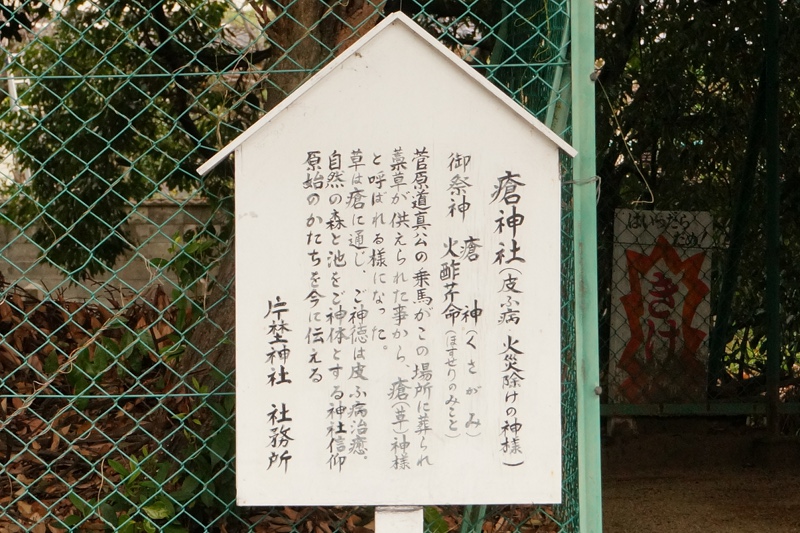 瘡神社(皮ふ病 火災除けの神様)
瘡神(くさがみ)
御祭神 火酢芹命(ほすせりのみこと)
菅原道真公の乗馬がこの場所に葬られ
藁草が供えられた事から、瘡(草)神様
と呼ばれる様になった。
草は瘡に通じ、ご神徳は皮ふ病治癒、
自然の森と池をご神体とする神社信仰
原始のかたちを今に伝える
片埜神社 社務所
はいったら
だめ!
きけ